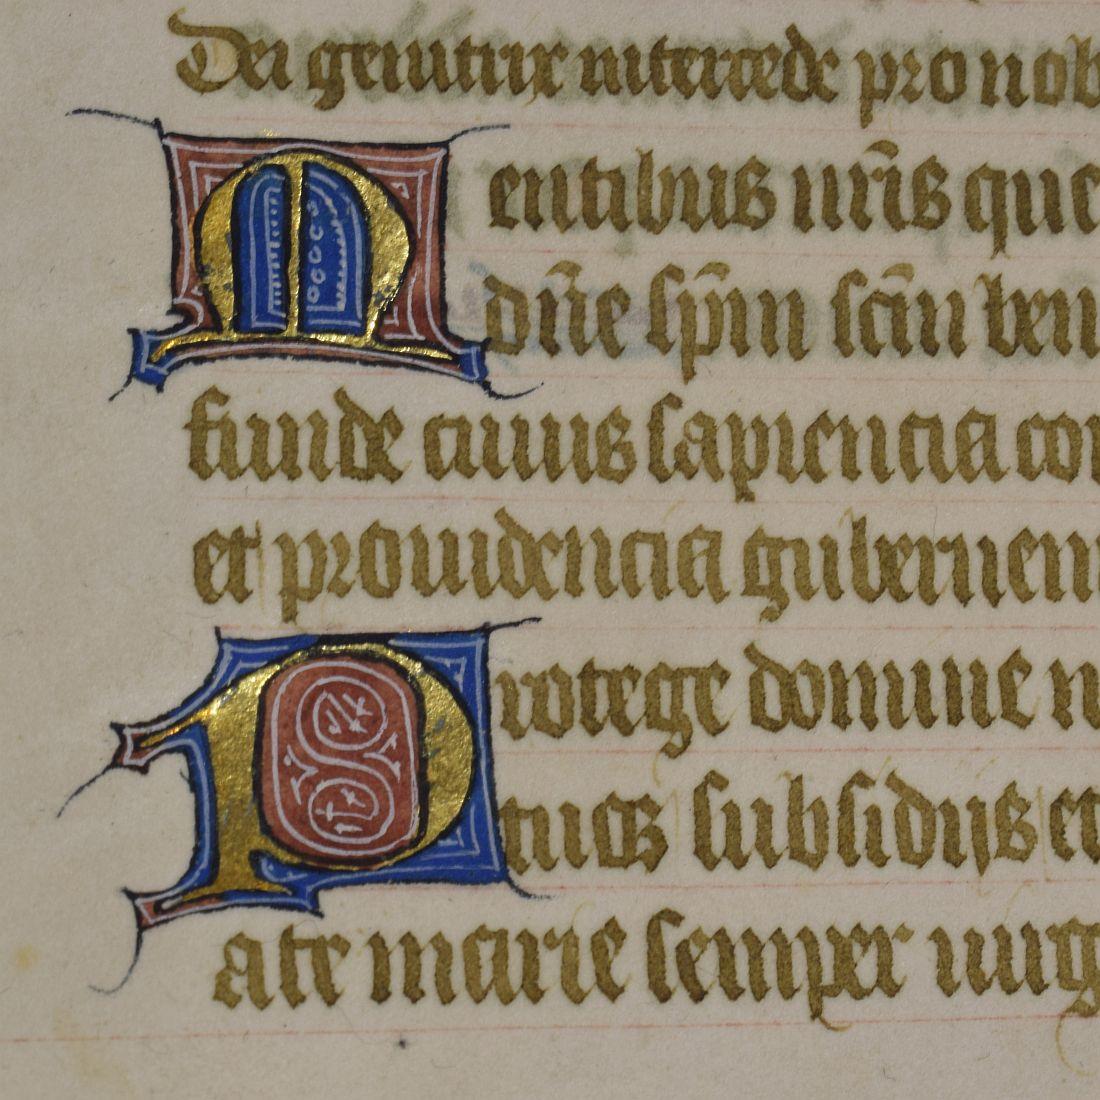 Dei genitrix intercede pro nob
Mentibus nr̄is que
dn̄e sp̄m sc̄m ben
funde cuius sapiencia co
et prouidencia gubernem
Protege domine n
tuos subsidijs et
ate marie semper uirg